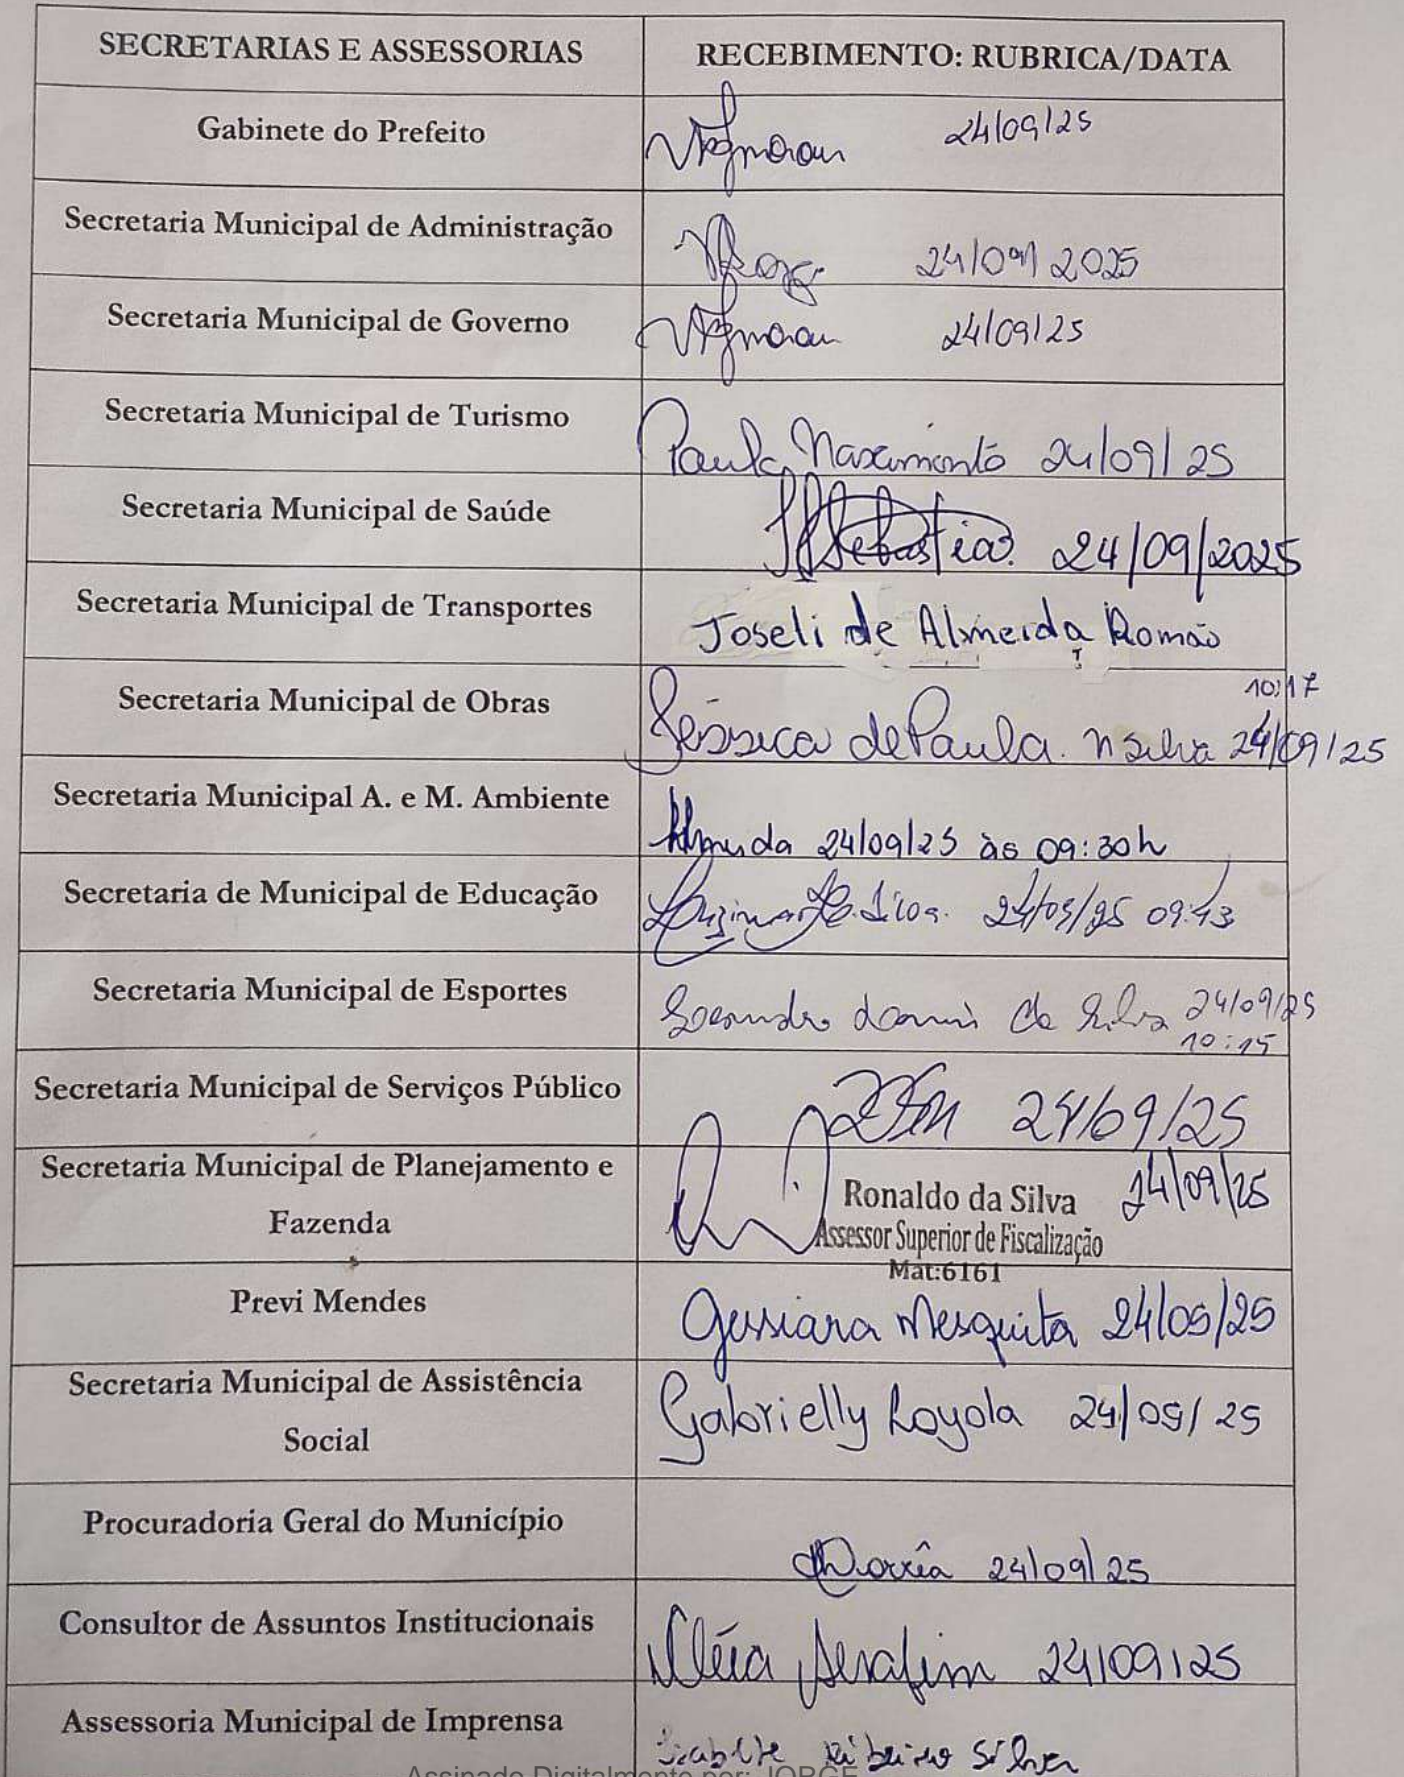 SECRETARIAS E ASSESSORIAS RECEBIMENTO: RUBRICA/DATA
Gabinete do Prefeito 24/09/25
Secretaria Municipal de Administração 24/09/2025
Secretaria Municipal de Governo 24/09/25
Secretaria Municipal de Turismo Paula Nascimento 24/09/25
Secretaria Municipal de Saúde 24/09/2025
Secretaria Municipal de Transportes Joseli de Almeida Romão
10:17
Secretaria Municipal de Obras Jéssica de Paula. N Silva 24/09/25
Secretaria Municipal A. e M. Ambiente 24/09/25 às 09:30h
Secretaria de Municipal de Educação 09:43
Secretaria Municipal de Esportes da Silva 24/09/25
10:15
Secretaria Municipal de Serviços Público 24/09/25
Secretaria Municipal de Planejamento e
Fazenda
Ronaldo da Silva 24/09/25
Assessor Superior de Fiscalização
Mat:6161
Previ Mendes Gessiara Mesquita 24/09/25
Secretaria Municipal de Assistência
Social
Gabrielly Loyola 24/09/25
Procuradoria Geral do Município 24/09/25
Consultor de Assuntos Institucionais Cléia Serafim 24/09/25
Assessoria Municipal de Imprensa Ribeiro Silva
Assinado Digitalmente por: JORGE